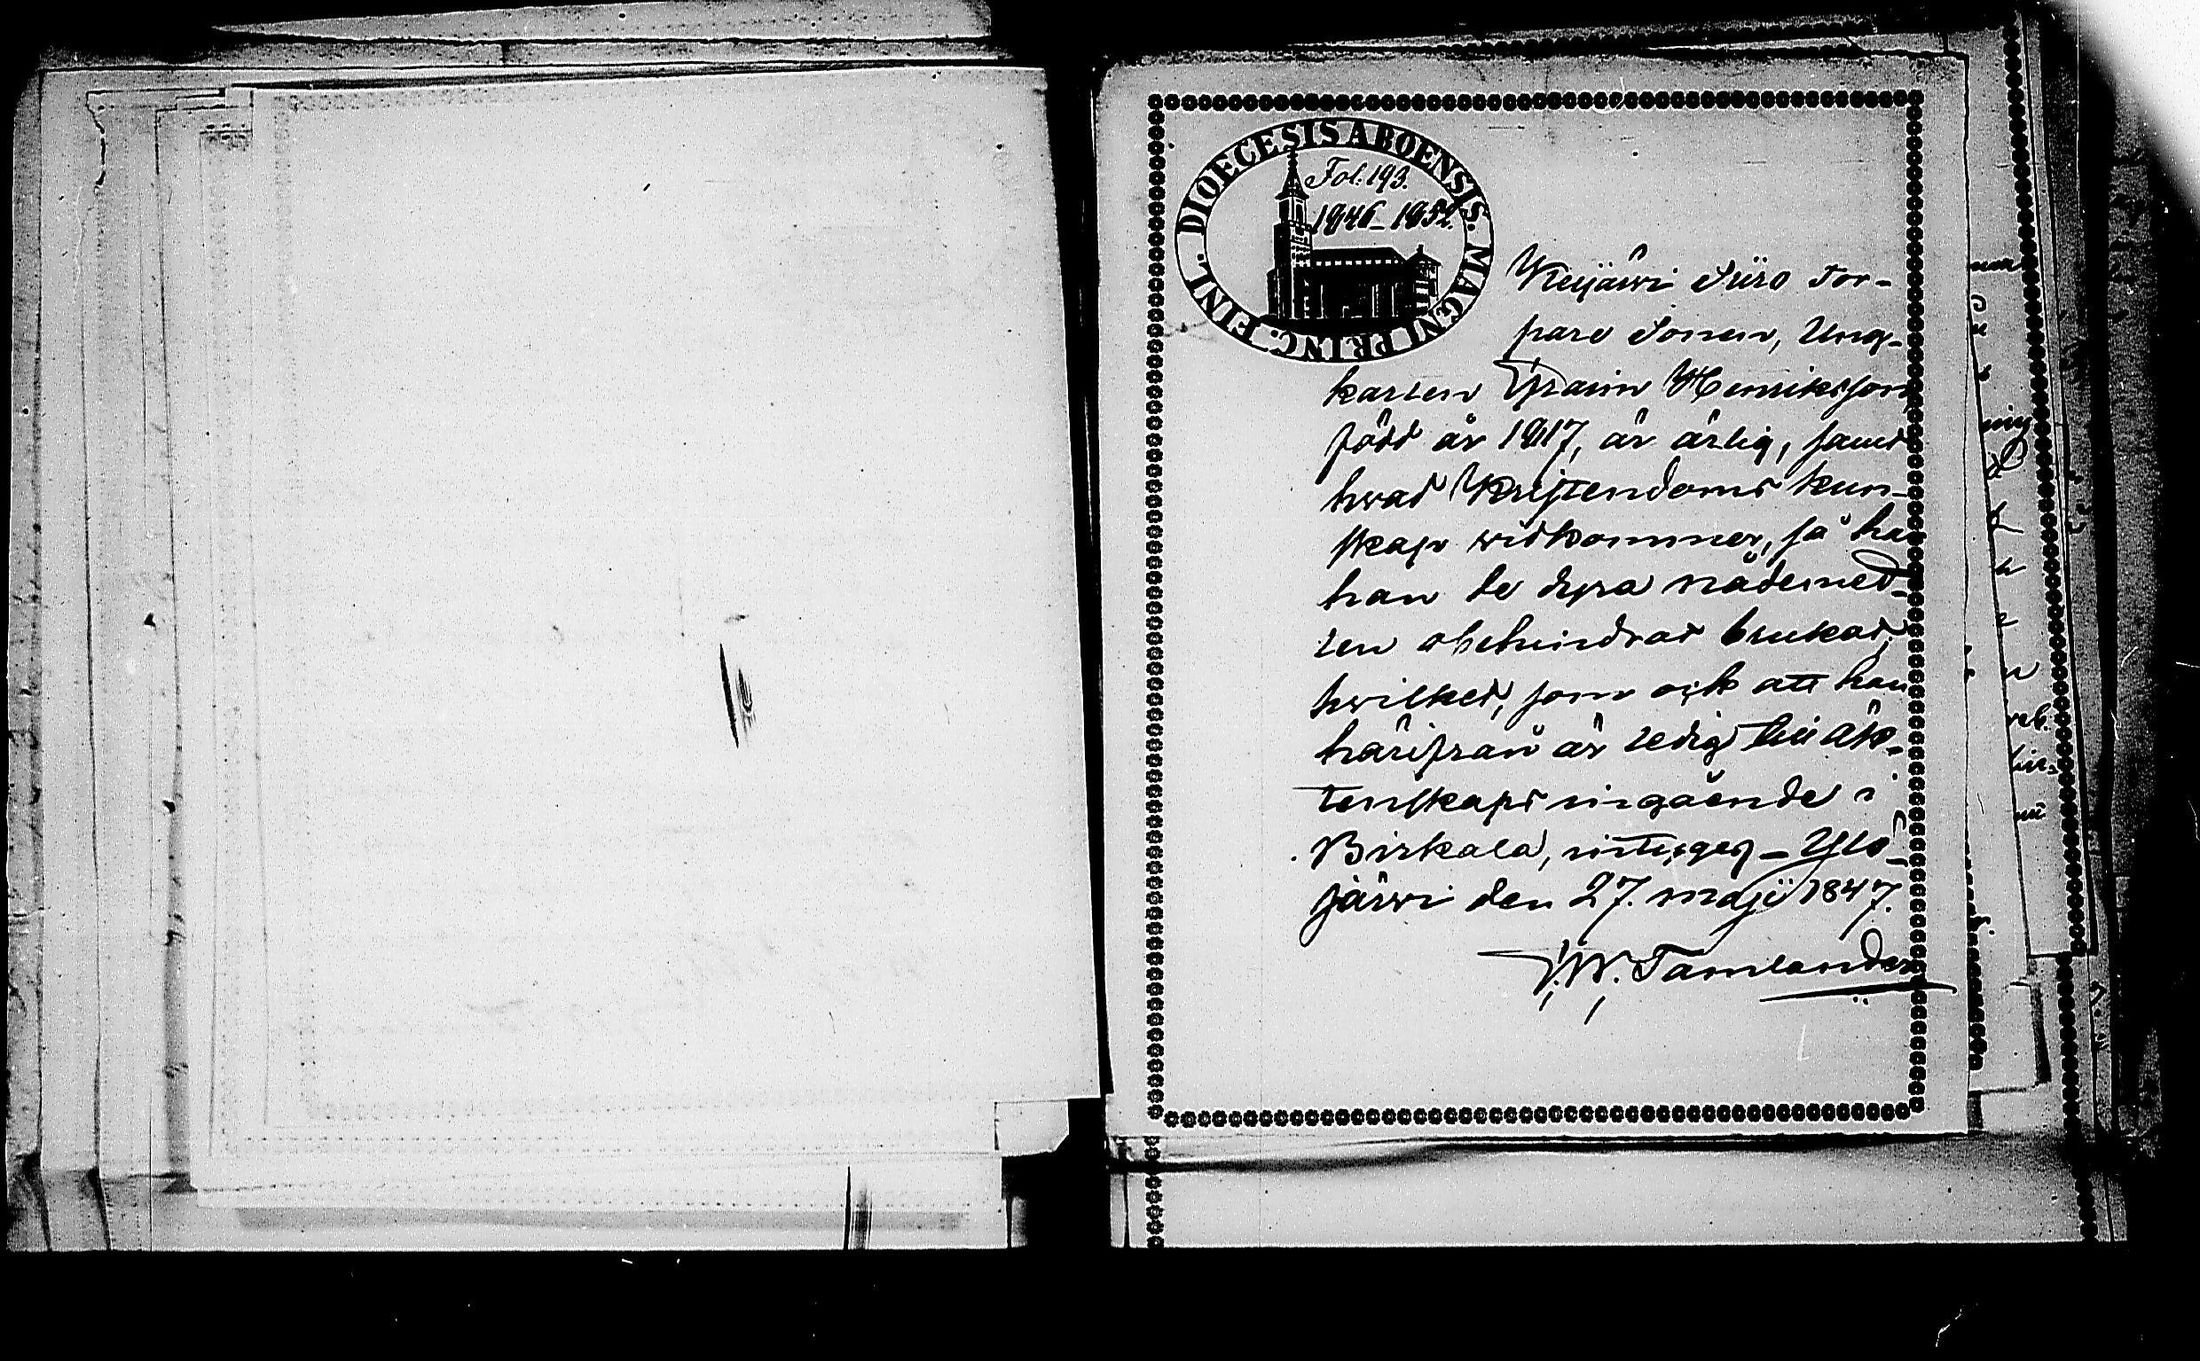 DIOECESIS ABOENSIS. MAGNI PRINC. FINL.
Fol. 193.
1846–1852.
Keijärwi Siiro Tor-
pare Sonen, Ung-
karlen Henriksson
född år 1817, är ärlig, samt
hwad Kristendoms kun-
skap widkommer, så har
han de dyra nådemed-
len obehindrat brukat,
hwilket, som ock att han
härifrån är ledig till äk-
tenskaps ingående i
Birkala, intygas – Ylö-
järwi den 27. maji 1847.
Tamlander